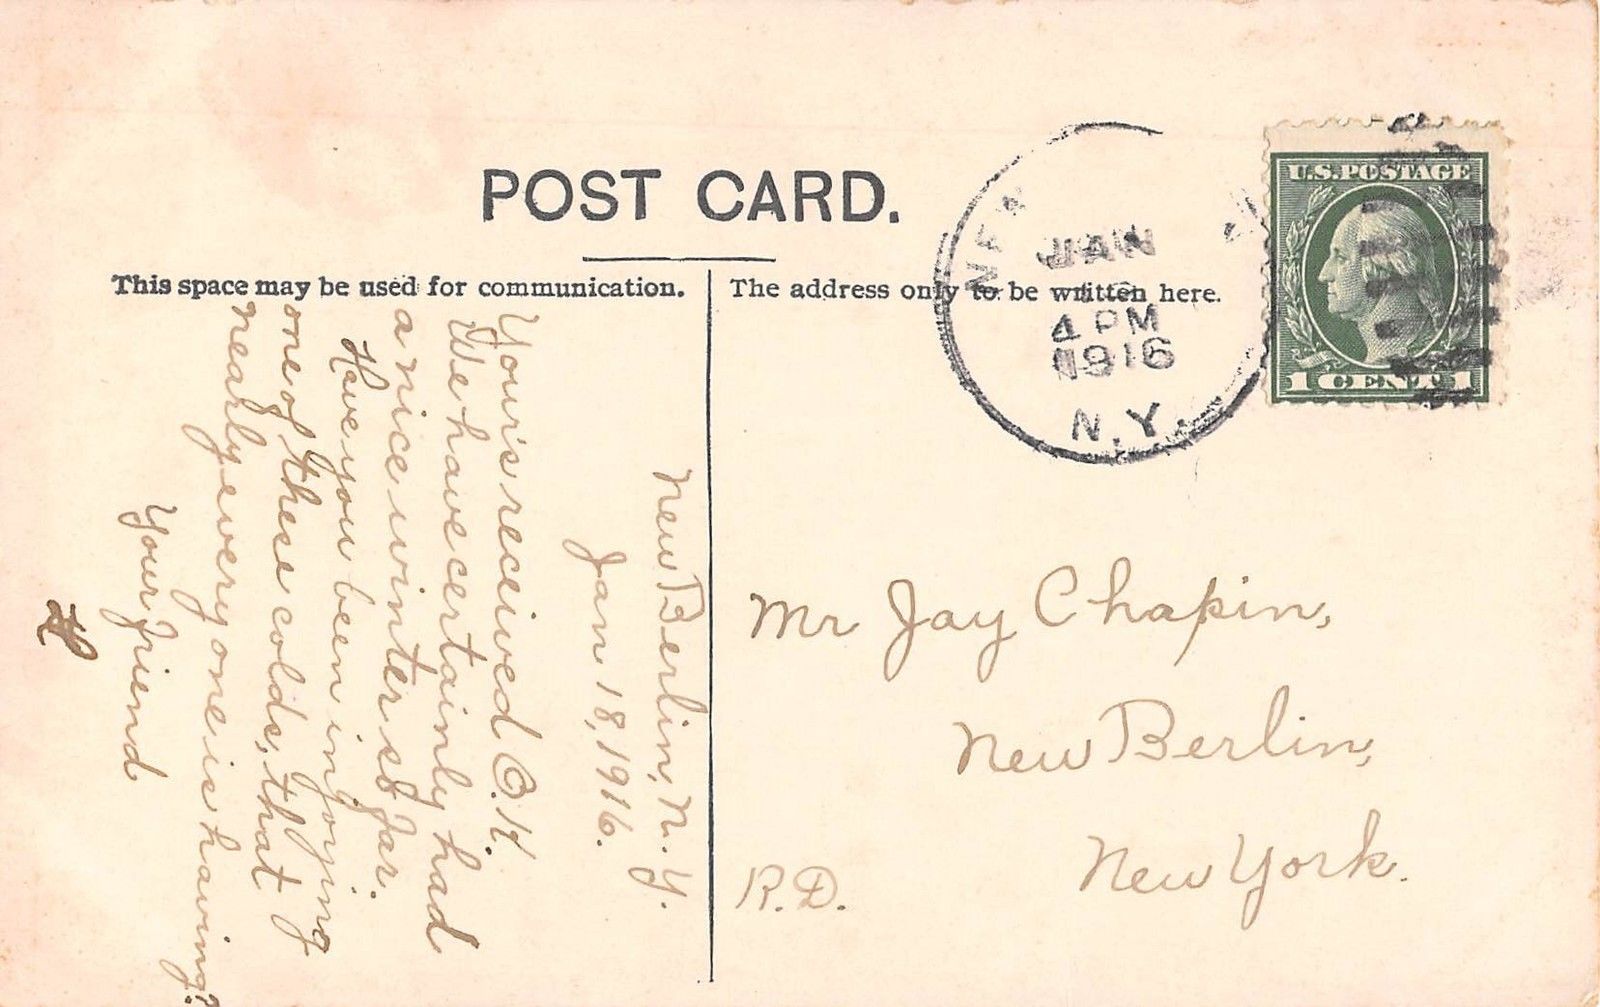 POST CARD.
This space may be used for communication.
The address only to be written here.
NEW
JAN
4 PM
1916
N.Y.
U.S. POSTAGE
1 CENT 1
New Berlin, N.Y.
Jan 18, 1916.
Your's received O.K.
We have certainly had
a nice winter so far.
Have you been injoying
one of these colds, that
nearly every one is having?
Your friend
Mr Jay Chapin,
New Berlin,
New York.
R.D.